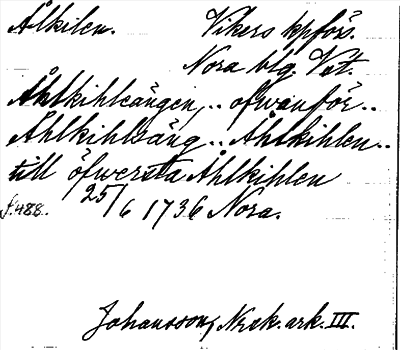 Ålkilen. Vikers kpförs.
Nora blg. Vst.
Åhlkihlsängen, .. ofwanför ..
Åhlkihlsäng .. Åhlkihlen ..
till öfwersta Åhlkihlen
f. 488. 25/6 1736 Nora.
Johansson, Nrk. ark. III.